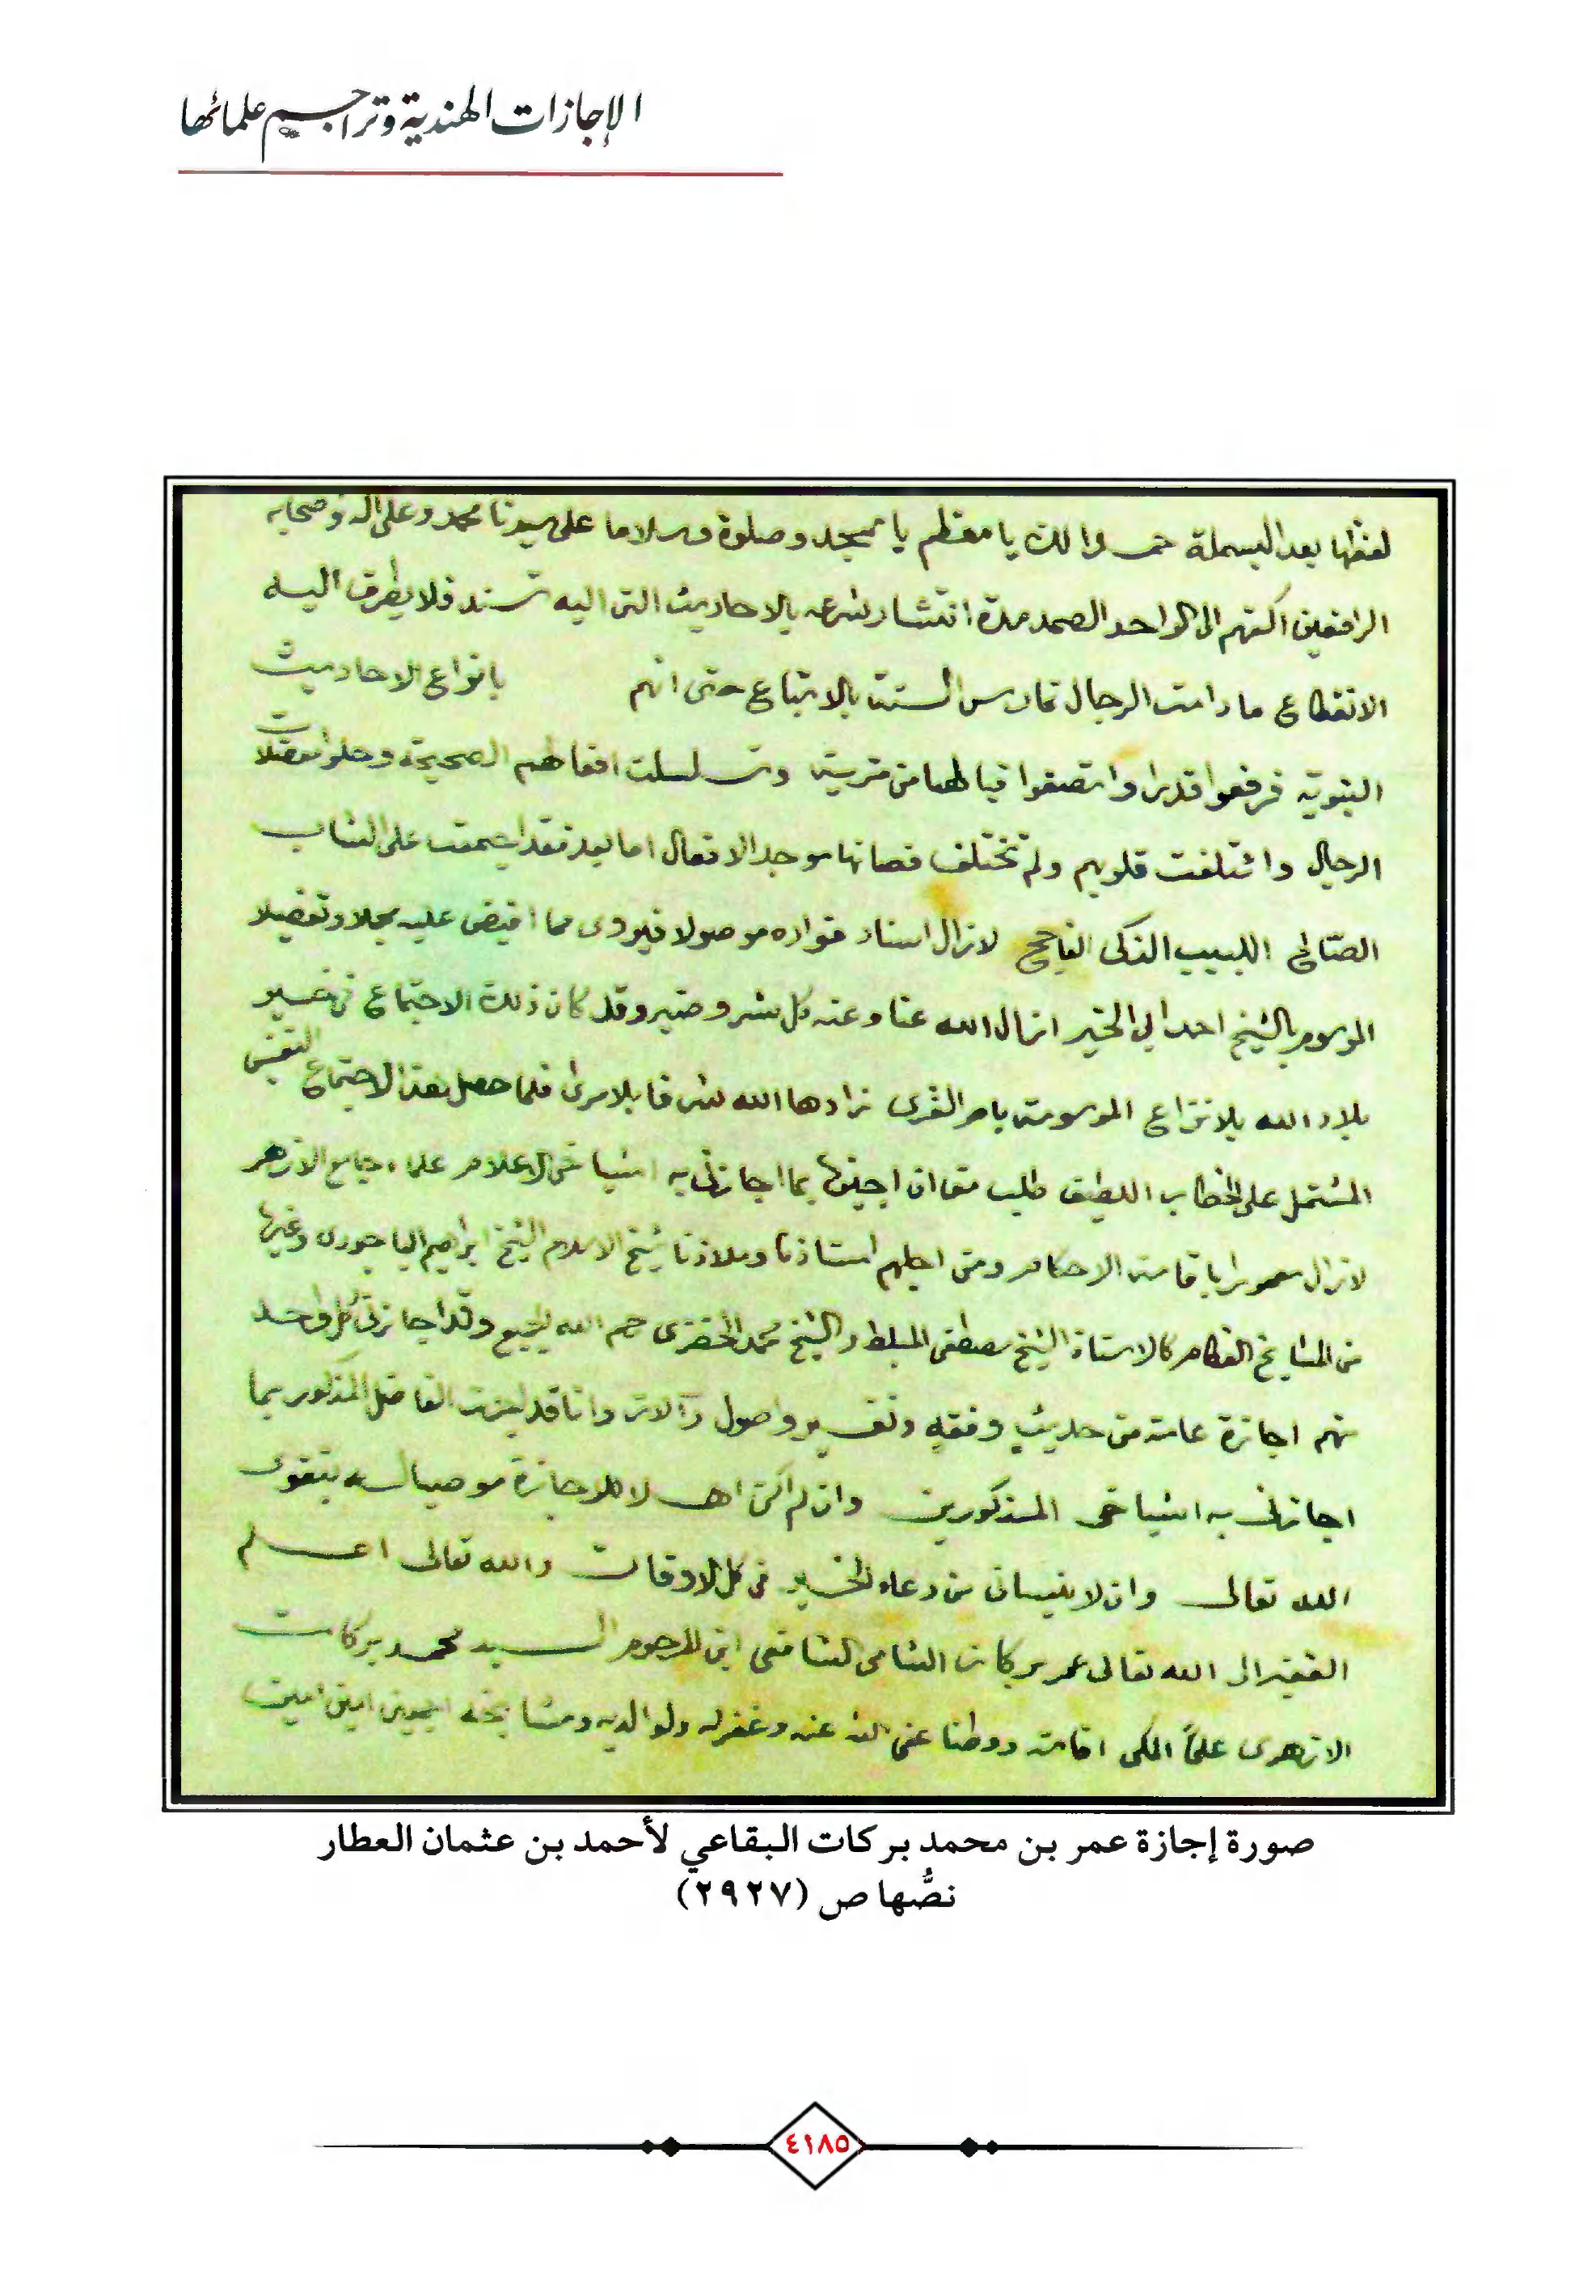 الإجازات الهندية وتراجيم علمائها
لفظها بعد البسملة حمدا لك يا معظم يا ممجد وصلوة وسلاما على سيدنا محمد وعلى اله وصحابه
الرافعين اكفهم الى الواحد الصمد مدة انتشار شرعه بالاحاديث التى اليه تسند فلا يطرق اليه
الانقطاع ما دامت الرجال تمارس السنة بالاتباع حتى انهم بانواع الاحاديث
النبوية فرفعوا قدرا واتصفوا فيا لها من مزية وتسلسلت افعالهم الصحيحة وحلوا معضلات
الرجال وائتلفت قلوبهم ولم تختلف فصانها موجد الافعال اما بعد فقد اجتمعت على الشاب
الصالح اللبيب الذكى الفاجح لا زال اسناد فواده موصولا فيروى مما افيض عليه مجملا وتفصيلا
الموسوم بالشيخ احمد ابى الخير ازال الله عنا وعنه كل شر وضير وقد كان ذلك الاجتماع فى خير
بلاد الله بلا نزاع الموسومة بام القرى زادها الله شرفا بلا مرى فلما حصل هذا الاجتماع النفيس
المشتمل على الخطاب اللطيف طلب منى ان اجيزه بما اجازنى به اشياخى الاعلام علماء جامع الازهر
لا زال معمورا باقامة الاحكام ومن اجلهم استاذنا وملاذنا شيخ الاسلام الشيخ ابراهيم الباجورى وغيرها
من المشايخ العظام كالاستاذ الشيخ مصطفى المبلط والشيخ محمد الخضرى رحم الله الجميع وقد اجازنى كل واحد
منهم اجازة عامة من حديث وفقه وتفسير واصول وآلات وانا قد اجزت الفاضل المذكور بما
اجازنى به اشياخى المذكورين وان لم اكن اهلا للاجازة موصيا له بتقوى
الله تعالى وان لا ينسانى من دعاء الخير فى كل الاوقات والله تعالى اعلم
الفقير الى الله تعالى عمر بركات الشامى الشافعى ابن المرحوم السيد محمد بركات
الازهرى علماً المكى اقامة ووطنا عفى الله عنه وغفر له ولوالديه ومشايخه اجمعين امين امين
صورة إجازة عمر بن محمد بركات البقاعي لأحمد بن عثمان العطار
نصُّها ص (٢٩٢٧)
٤١٨٥